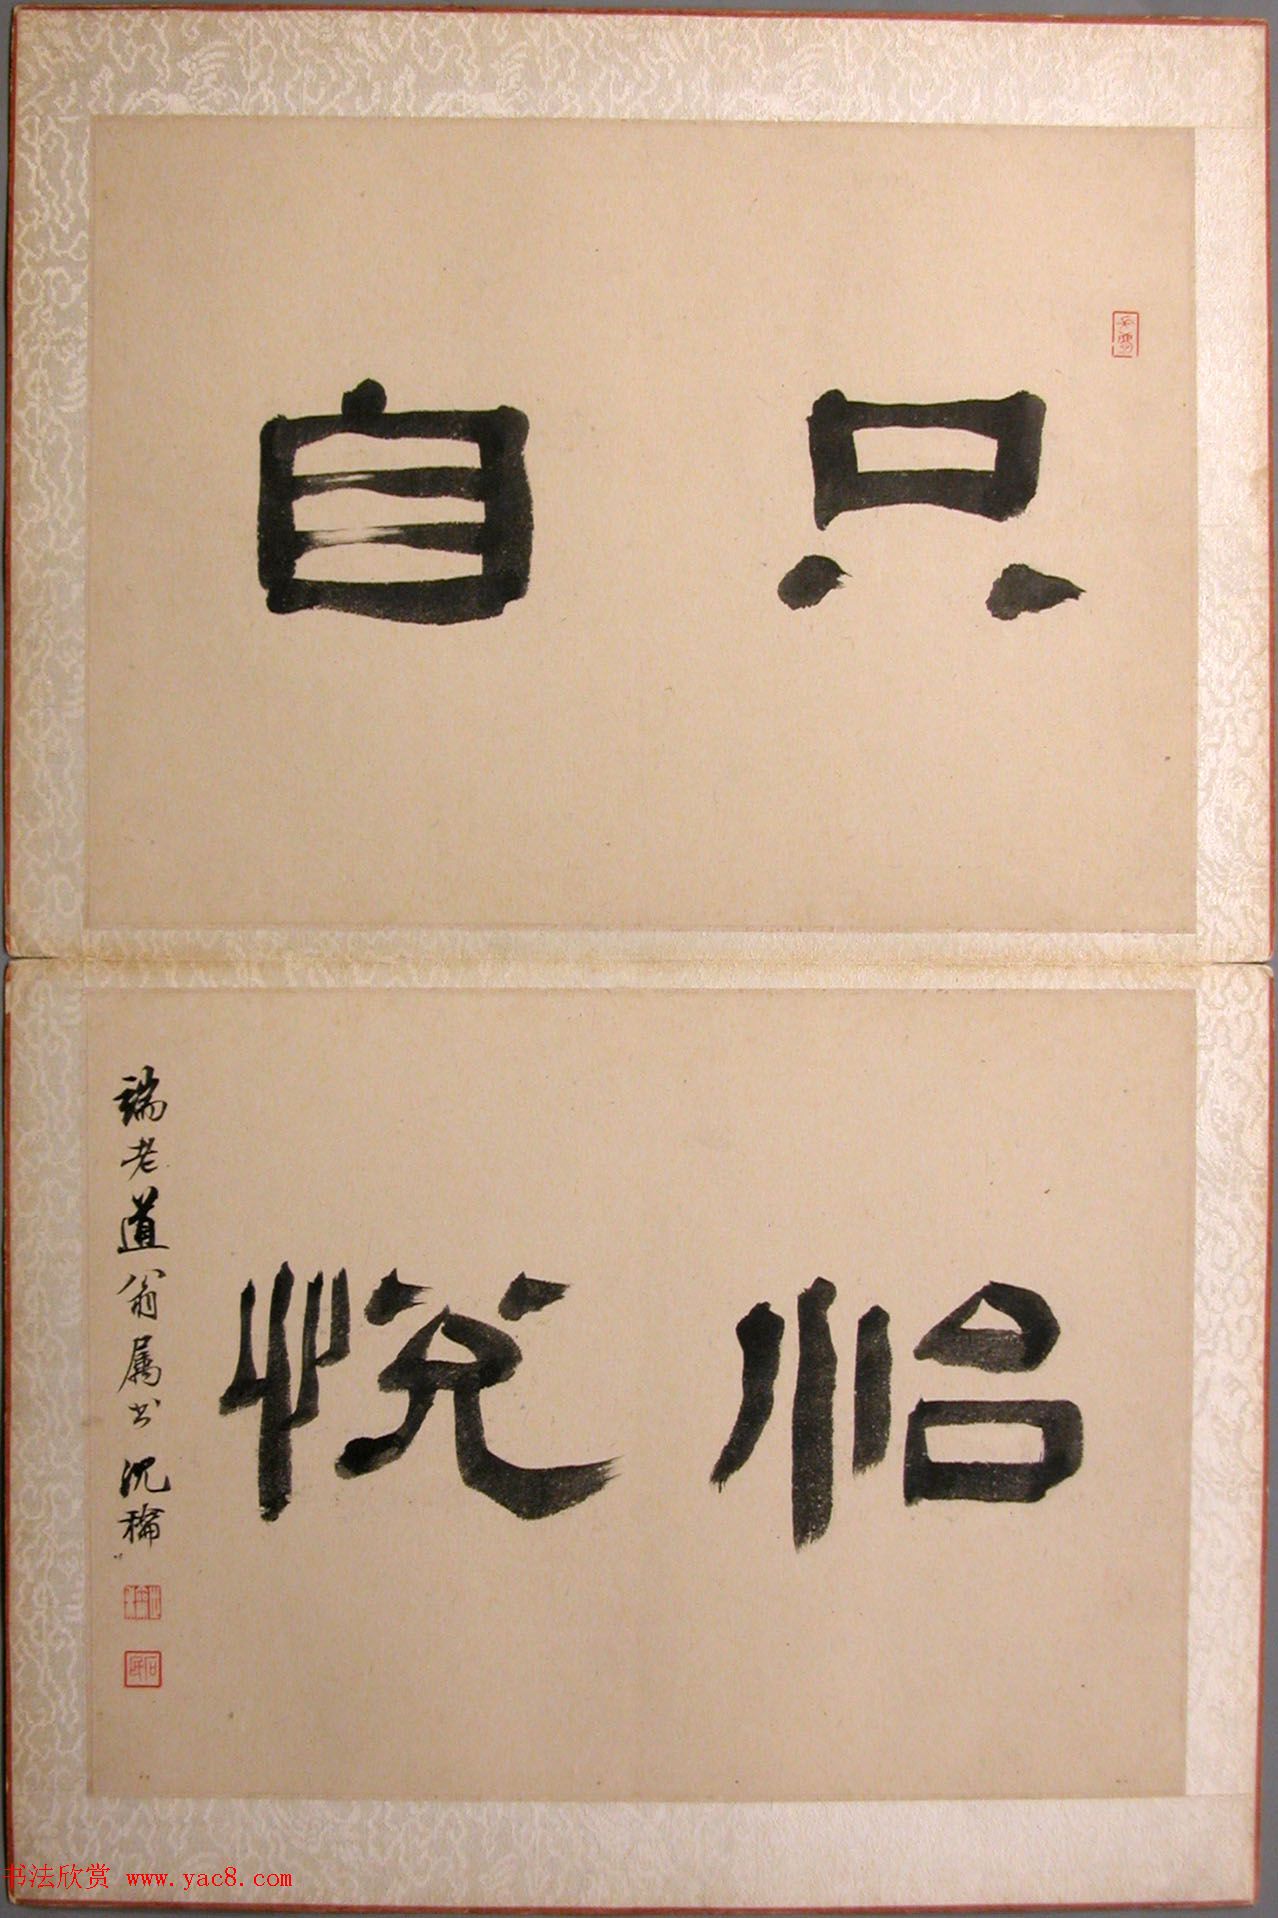 只自
怡悦
端老道翁属书 沈
书法欣赏 www.yac8.com